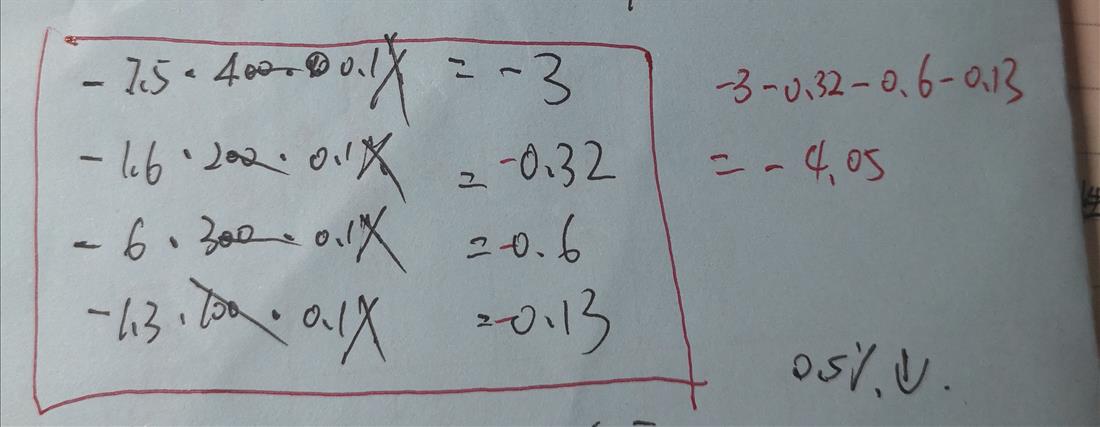 - 7.5 · 400 · 0.1% = -3
- 1.6 · 200 · 0.1% = -0.32
- 6 · 300 · 0.1% = -0.6
- 1.3 · 100 · 0.1% = -0.13
-3-0.32-0.6-0.13
= -4.05
0.5%